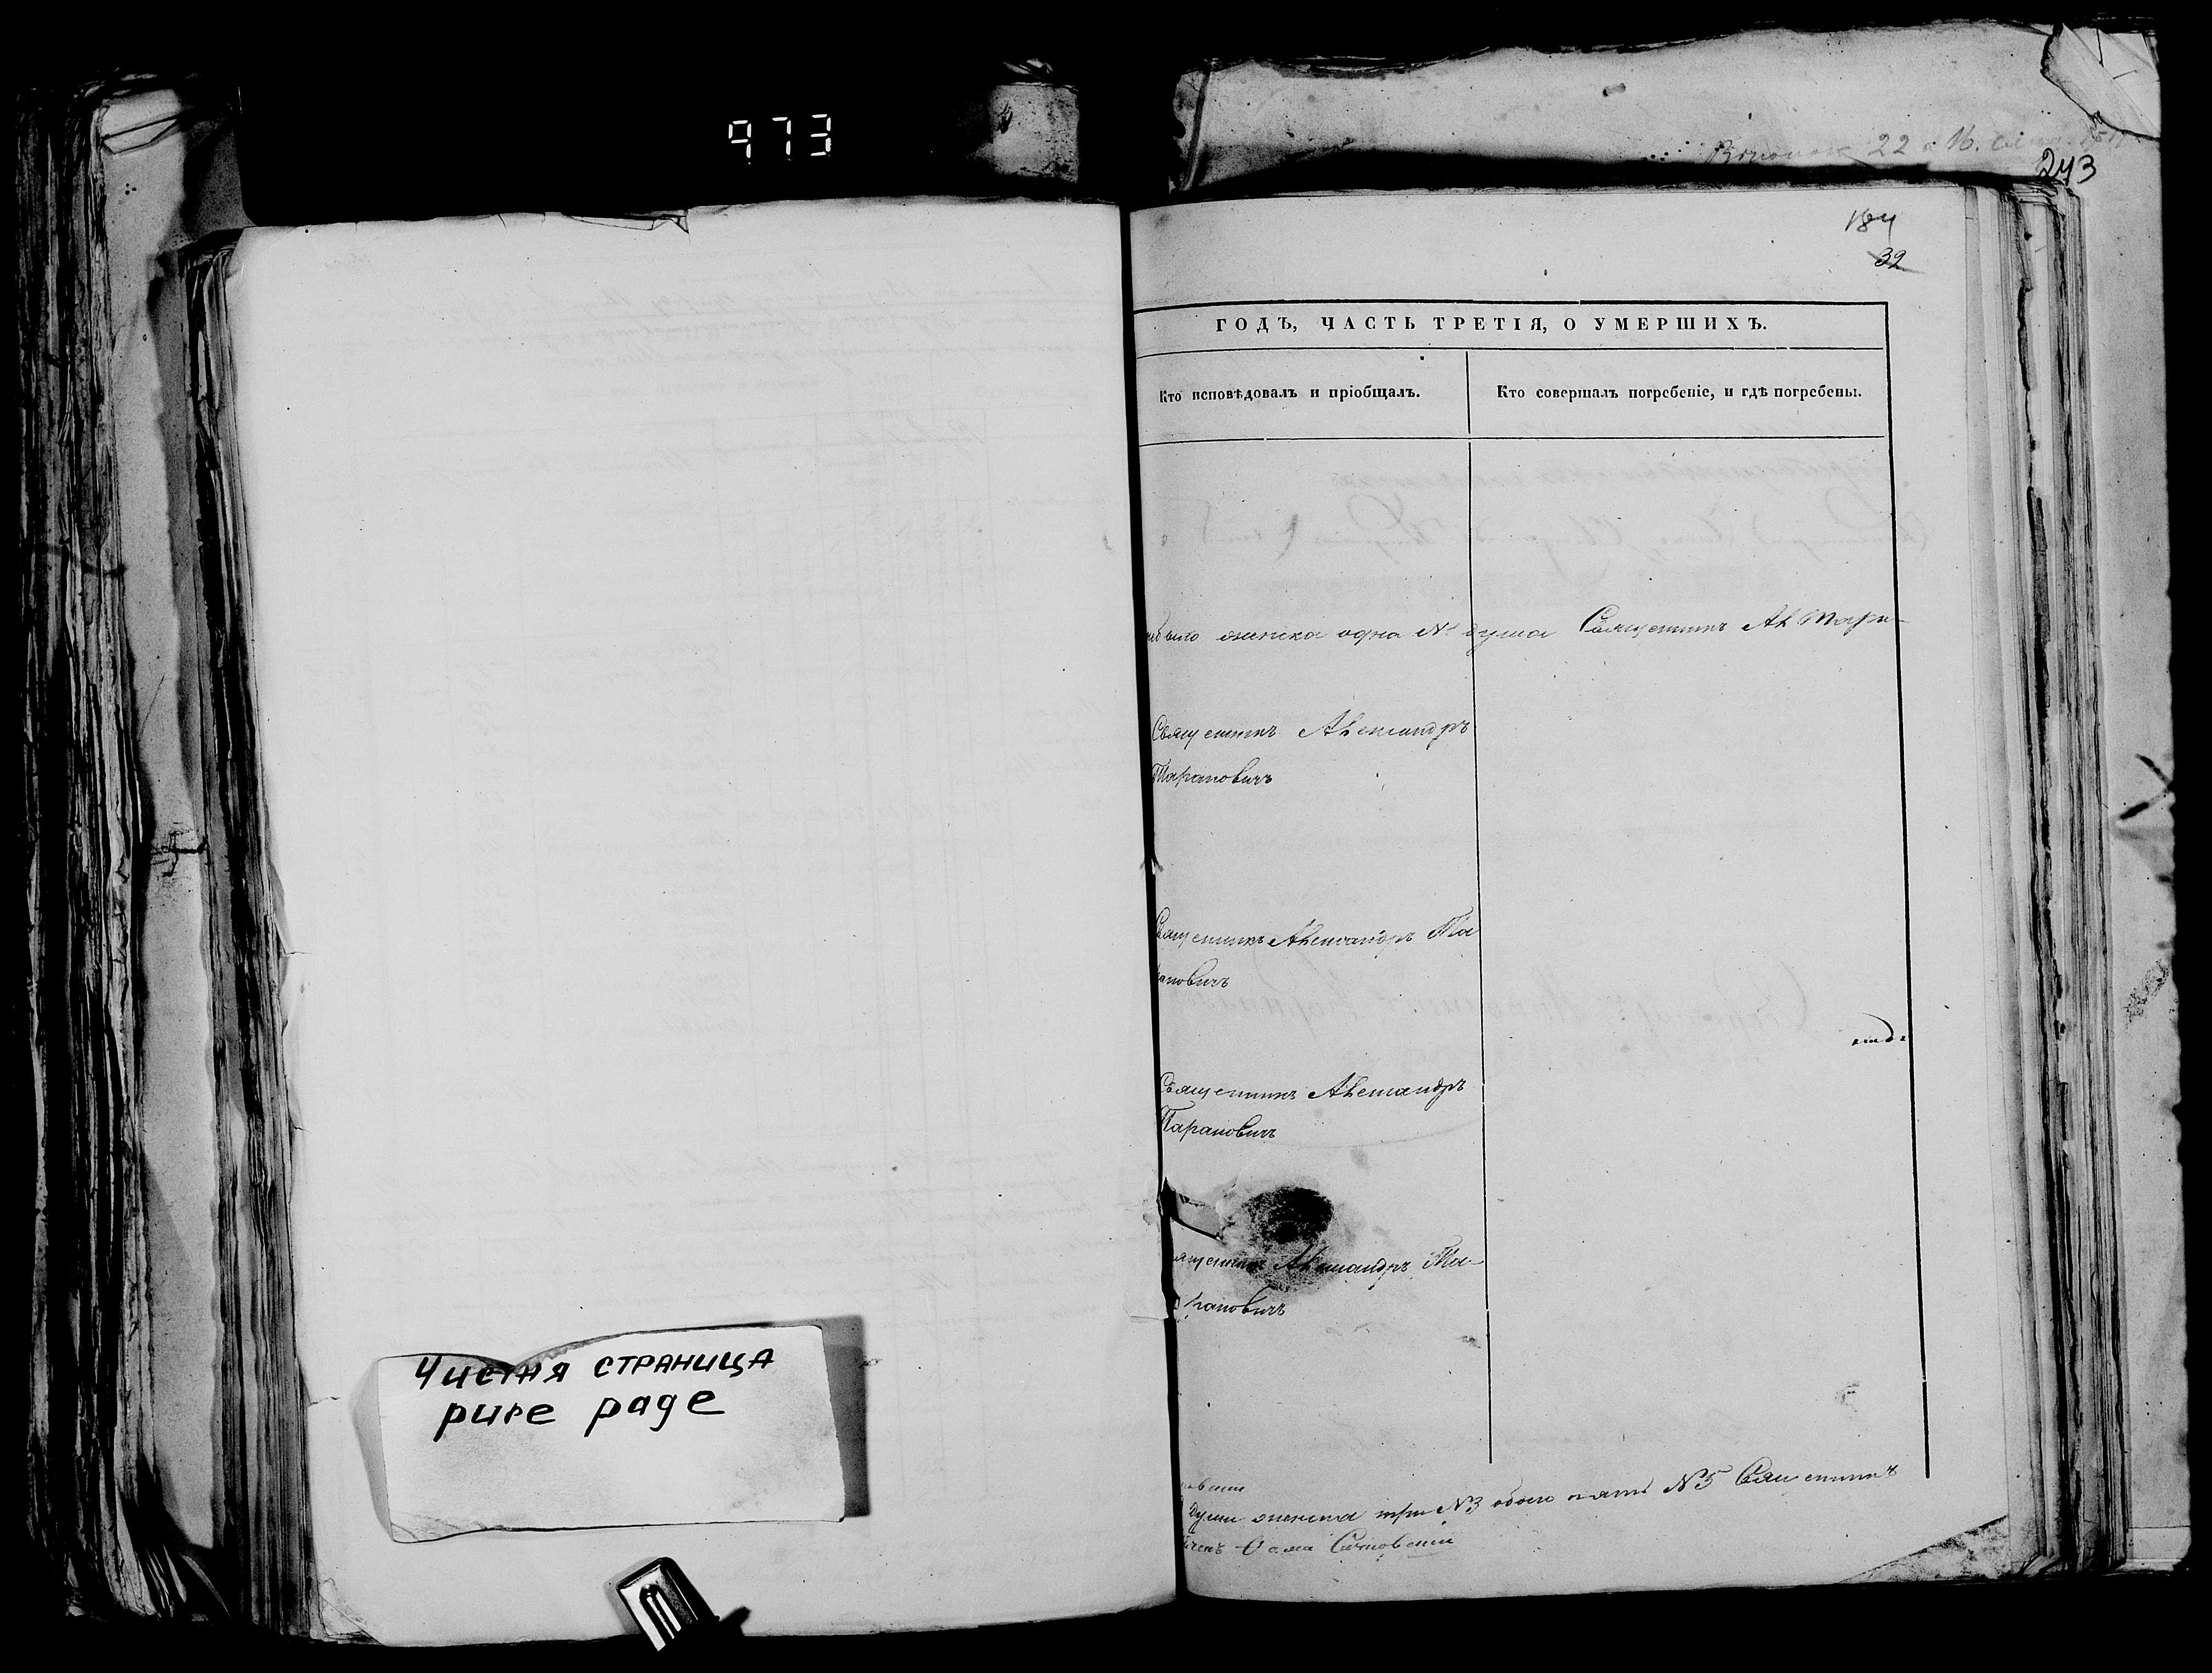 973
243
184
32
ГОДЪ, ЧАСТЬ ТРЕТІЯ, О УМЕРШИХЪ.
Кто исповѣдовалъ и пріобщалъ.
Кто совершалъ погребеніе, и гдѣ погребены.
женска одна №1 душа Священникъ Ал. Тара-
Священникъ Александръ
Тарановичъ
Священникъ Александръ Та
рановичъ
Священникъ Александръ
Тарановичъ
Священникъ Александръ Та-
рановичъ
души женска три №3 обоего пять №5 Священникъ
Чистая страница
pure page